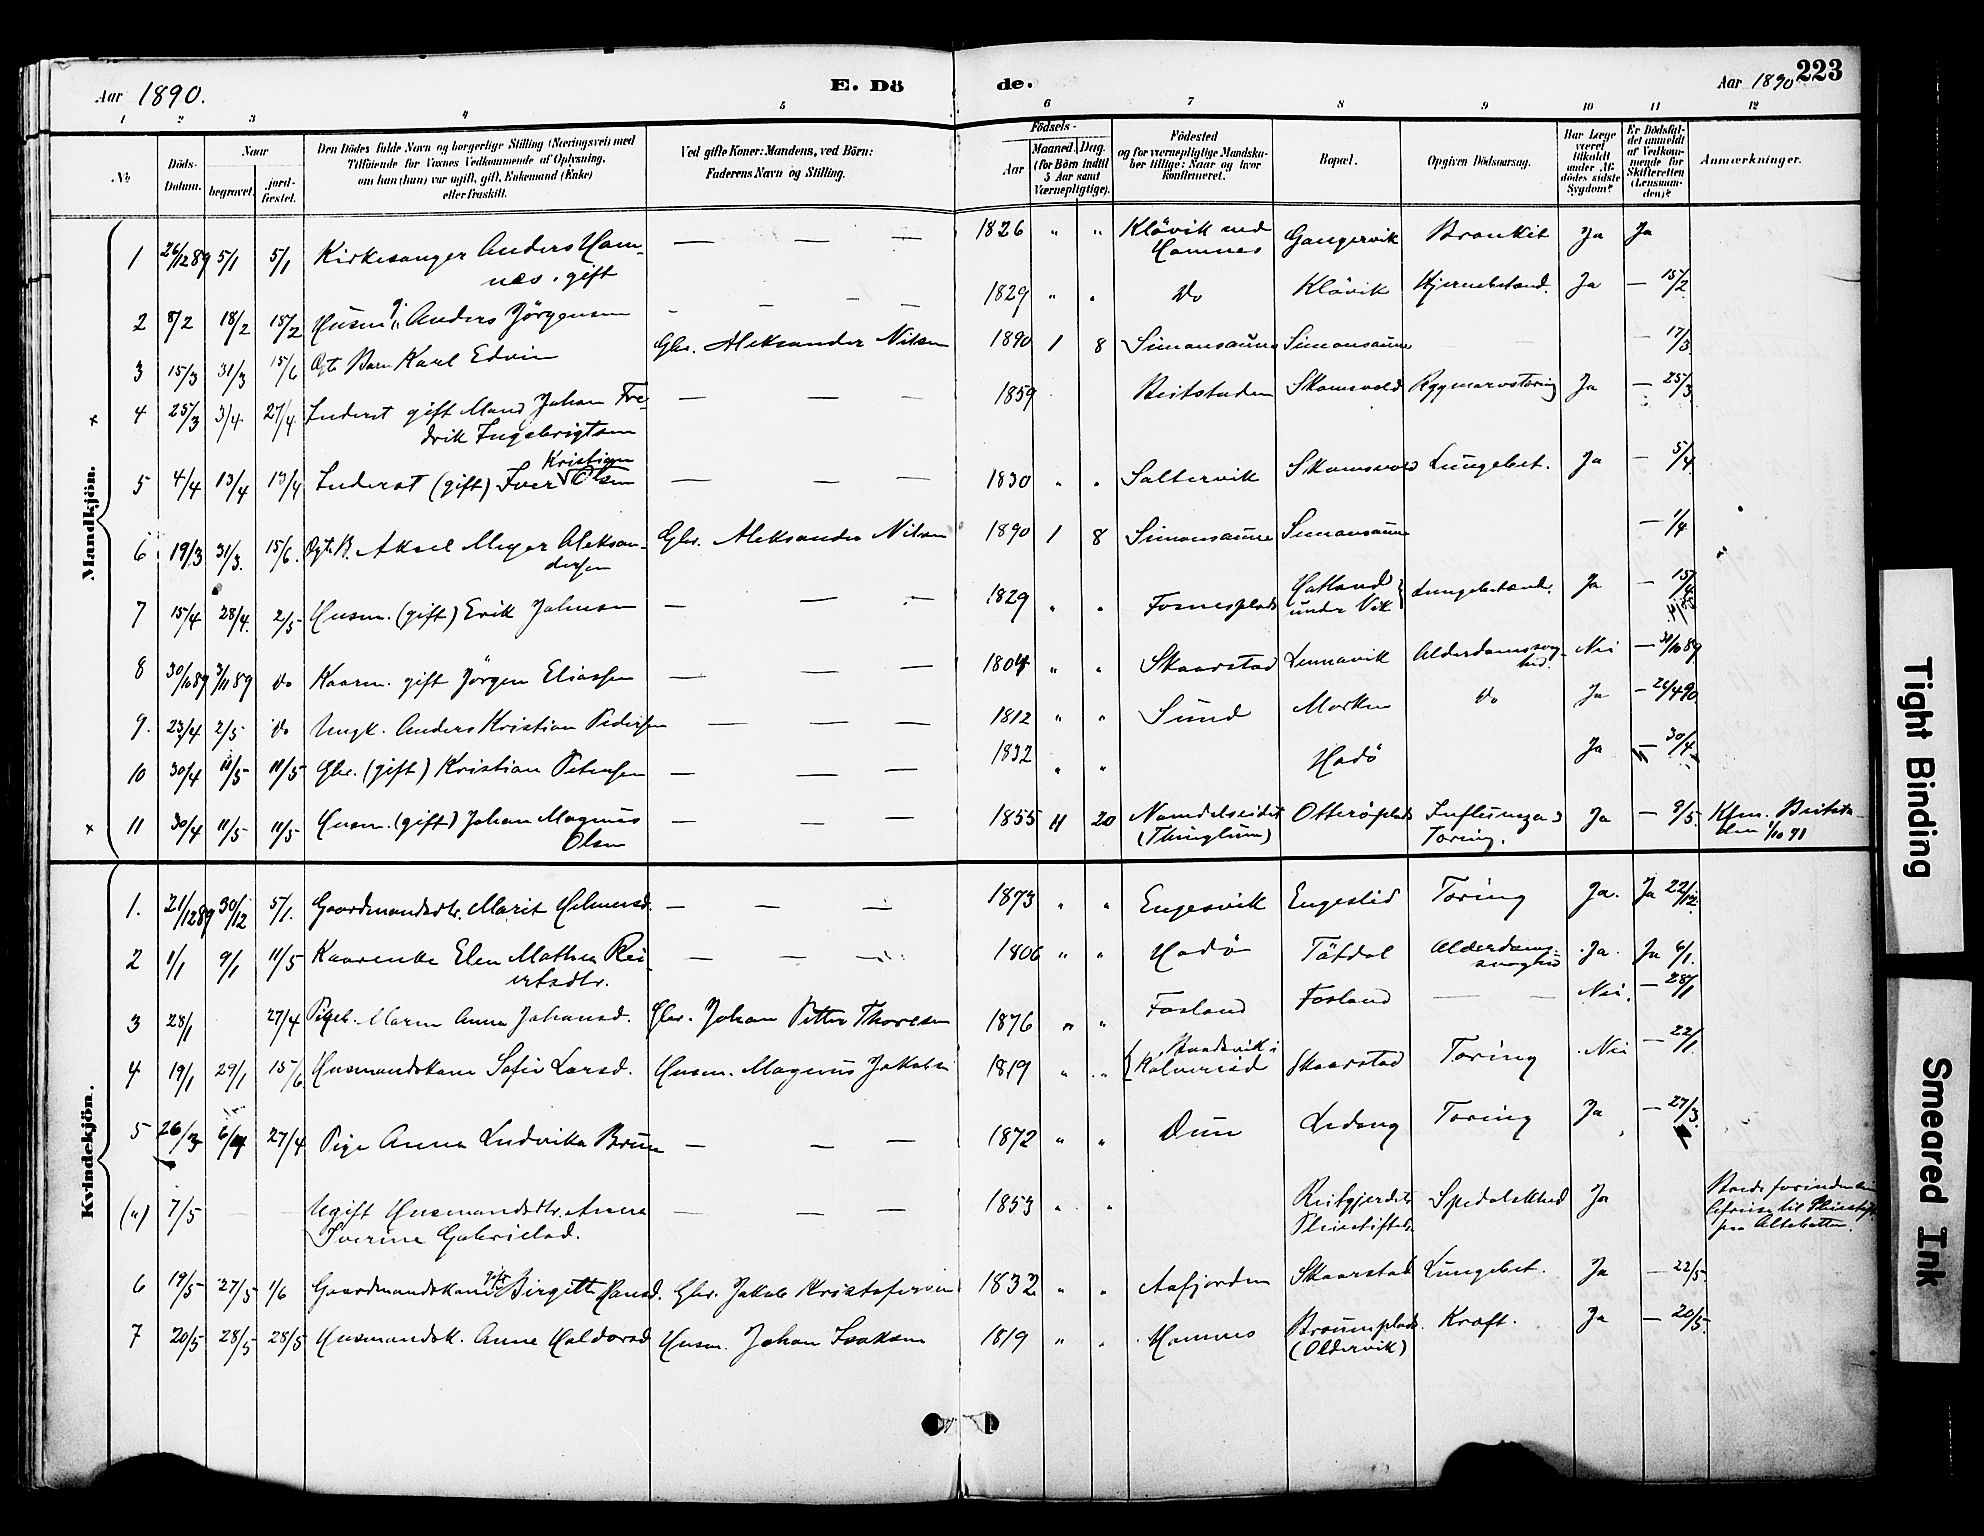 Aar 1890. E. Dö de. Aar 1890 223
1 2 3 4 5 6 7 8 9 10 11 12
No
Döds-Datum.
Naar
begravet.
jord-fæstet.
Den Dödes fulde Navn og borgerlige Stilling (Næringsvei) med
Tilföiende for Voxnes Vedkommende af Oplysning,
om han (hun) var ugift, gift, Enkemand (Enke)
eller fraskilt.
Ved gifte Koner: Mandens, ved Börn:
Faderens Navn og Stilling.
Födsels-
Aar
Maaned. Dag.
(for Börn indtil
5 Aar samt
Værnepligtige).
Födested
og for værnepligtige Mandska-
ber tillige: Naar og hvor
konfirmeret.
Bopæl.
Opgiven Dödsaarsag.
Har Læge
været
tilkaldt
under Af-
dödes sidste
Sygdom?
Er Dödsfal-
det anmeldt
af Vedkom-
mende for
Skifteretten
(Lensman-
den)?
Anmærkninger.
Mandkjön.
1 26/12 89 5/1 5/1 Kirkesanger Anders Ham- — — — 1826 " " Klövik ved Gangervik Bronkit Ja Ja
nes. gift Hamnes
2 8/2 18/2 18/2 Husm. g. Anders Jörgensen - — — — 1829 " " Do Klövik Hjernebetænd. Ja — 15/2
3 15/3 31/3 15/6 Ægt. Barn Karl Edvin Gbr. Aleksander Nilsen 1890 1 8 Simonsaune Simonsaune — 17/3
x 4 25/3 3/4 27/4 Inderst gift Mand Johan Fre- — — — 1859 Beitstaden Skomsvold Rygmarvstæring Ja — 25/3
drik Ingebrigtsen
Kristian
5 4/4 13/4 13/4 Inderst (gift) Iver Olsen — — — 1830 " " Saltervik Skomsvold Lungebet. Ja — 5/4
6 19/3 31/3. 15/6. Ægt. B. Aksel Meyer Aleksan- Gbr. Aleksander Nilsen 1890 1 8 Simonsaune Simonsaune — 1/4
dersen
7 15/4 28/4. 2/5 Husm. (gift) Erik Johnsen — — — 1829 " " Fosnesplads Hatland Lungebetænd. Ja — 15/4
under Vik
8 30/10 89 3/11 89 do Kaarm. gift Jörgen Eliassen — — — 1804 " " Skaarstad Lennavik Alderdomssvag- Nei — 31/10 89
hed.
9. 23/4 2/5 do Ungk. Anders Kristian Pedersen — — — 1812 " " Sund Morken Do Ja — 26/4 90
10 30/4 11/5 11/5 Gbr. (gift) Kristian Petersen — — — 1832 " " Hodö Ja — 30/4
x 11 30/4 11/5 11/5 Husm. (gift) Johan Magnus — — — 1855 11 20 Namdalseidet Otteröplads Influenza & Ja — 9/5. Kfm. Beitsta-
Olsen Tæring. den 1/10 71
Kvindekjön.
1. 21/12 89 30/12 5/1. Gaardmandsdtr. Marit Helmersd. — — — 1873 " " Engesvik Engeslid Tæring Ja. Ja 22/12.
2 1/1 9/1 11/5 Kaarenke Elen Mathea Rei- — — — 1806 " " Hodö Tötdal Alderdoms- Ja. Ja 6/1.
ertsdtr. svaghed
3 28/1 27/4 Pigeb. Maren Anna Johansd. Gbr. Johan Petter Thoresen 1876 " " Fosland Fosland — — Nei. — 28/1
4 19/1 29/1 15/6 Husmandskone Sofie Larsd. Husm. Magnus Jakobsen 1819 " " Skaarstad Tæring Nei — 22/1.
5 26/3 6/4 27/4 Pige Anna Ludvika Bruun — — — 1872 " " Duun Ledang Tæring Ja — 27/3.
(a) 7/5 — — Ugift Husmandsdtr. Anna — — — 1853 " " Reitgjerdets Spedalskhed Ja
Iverine Gabrielsd. Pleiestiftelse paa
6 19/5 27/5 1/6 Gaardmandskone Birgitte Hansd. Gbr. Jakob Kristofersen 1832 " " Aafjorden Skaarstad Lungebet. Ja — 22/5
7 20/5 28/5 28/5 Husmandsk. Anne Haldorsd. Husm. Johan Isaksen 1819 " " Hamnes Braumplads. Kræft. Ja — 20/5.
(Oldervik)
Tight Binding
Smeared Ink